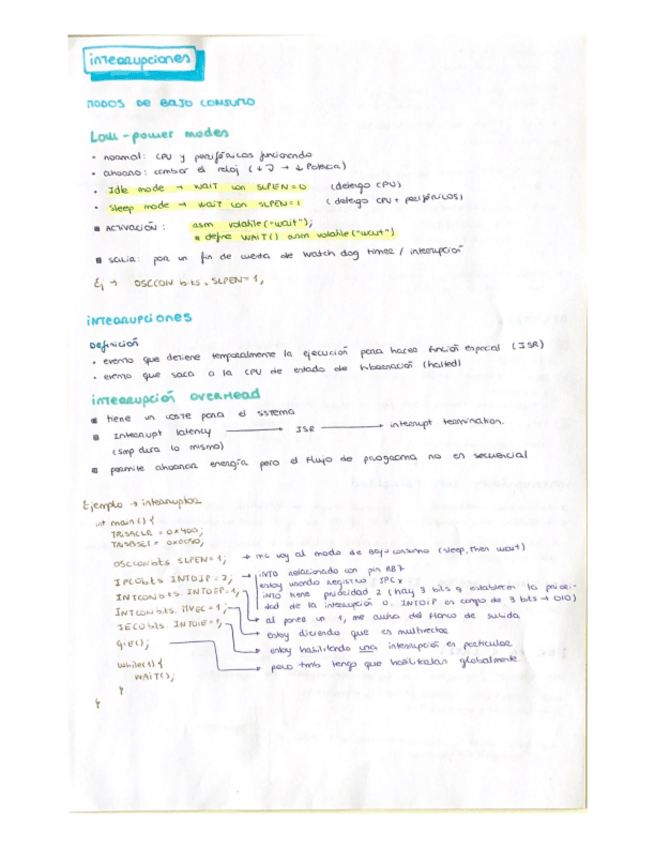 interrupciones
MODOS DE BAJO CONSUMO
Low-power modes
• normal: CPU y periféricos funcionando
• ahorro: cambiar el reloj (↓ → ↓ Potencia)
• Idle mode → WAIT con SLPEN=0 (detengo CPU)
• Sleep mode → wait con SLPEN=1 (detengo CPU + periféricos)
■ ACTIVACIÓN: asm volatile("wait");
# define WAIT() asm volatile("wait")
■ salia: por un fin de cuenta de watch dog timer / interrupción
Ej → OSCCON bits.SLPEN=1;
interrupciones
Definición
• evento que detiene temporalmente la ejecución para hacer función especial (ISR)
• evento que saca a la CPU de estado de hibernación (halted)
interrupción overhead
■ tiene un coste para el sistema
■ Interrupt latency → ISR → interrupt termination.
(smp dura lo mismo)
■ permite ahorrar energía pero el flujo de programa no es secuencial
Ejemplo → interruptor
int main() {
TRISACLR = 0x400;
OSCCONbits SLPEN=1; → me voy al modo de bajo consumo (sleep, then wait)
IPC0bits INT0IP=2; → INT0 relacionado con pin RB7
estoy usando registro IPCx
INTCONbits. INT0EP=1; INT0 tiene prioridad 2 (hay 3 bits q establecen la priori-
INTCONbits. MVEC=1; dad de la interrupción 0. INT0IP es campo de 3 bits → 010)
IEC0bits. INT0IE=1; → al poner un 1, me avisa del flanco de subida
→ estoy diciendo que es multivector
GIE(); → estoy habilitando una interrupción en particular
while(1) { → pero tmb tengo que habilitarlas globalmente
WAIT();
}
}